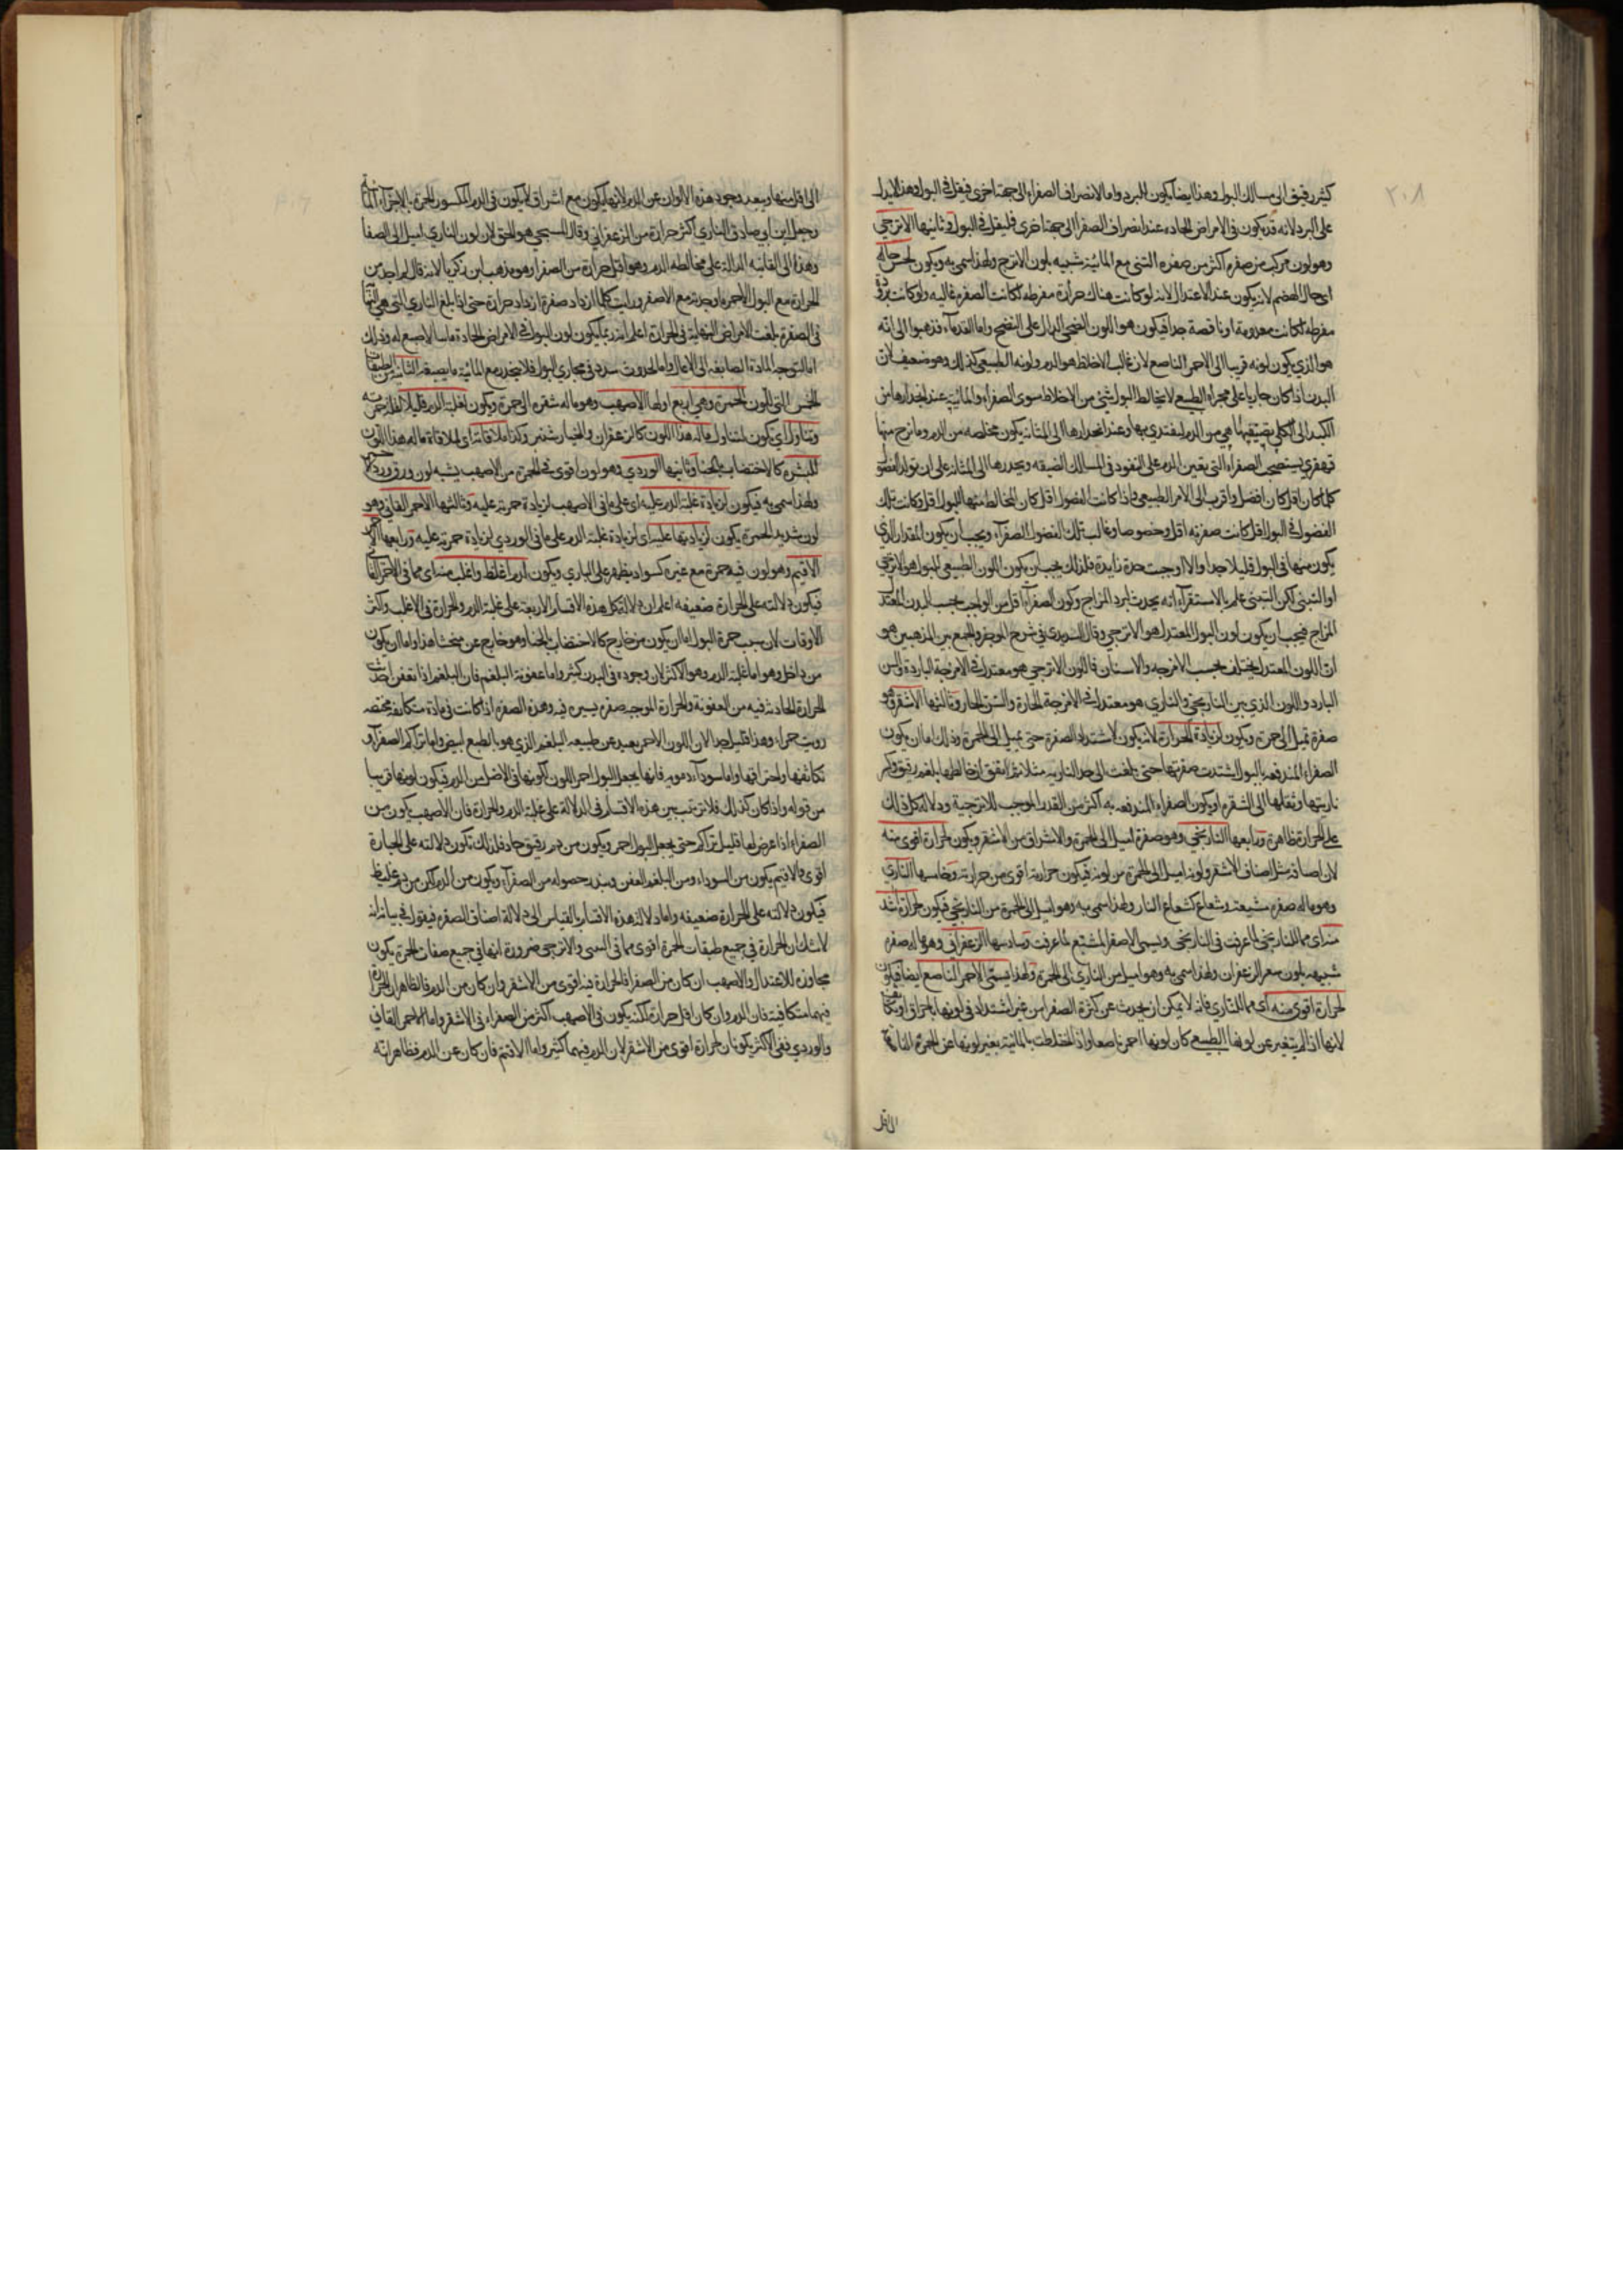 ٢٠٨
كثير رقيق الى مسالك البول وهذا ايضا يكون للبرد واما لانصراف الصفراء الى جهة اخرى فيقل في البول وهذا لا يدل
على البرد لانه قد يكون في الامراض الحاده عند انصراف الصفرا الى جهة اخرى فليقل في البول وثانيها الاترجي
وهو لون مركب من صفره اكثر من صفره التبني مع المائية شبيه بلون الاترج ولهذا سمي به ويكون لحسن حاله
اي حال الهضم لانه يكون عند الاعتدال لانه لو كانت هناك حرارة مفرطه لكانت الصفرة غاليه ولو كانت برودة
مفرطه لكانت معدومة او ناقصة جدا فيكون هو اللون الصحي الدال على النضج واما القدماء فذهبوا الى انه
هو الذي يكون لونه قريبا الى الاحمر الناصع لان غالب الاخلاط هو الدم ولونه الطبيعي كذلك وهو ضعيف لان
البدن اذا كان جاريا على مجراه الطبيعي لا يخالط البول شئ من الاخلاط سوى الصفراء والمائية عند انحدارها من
الكبد الى الكلى يصبحها شئ من الدم ليغتدي بها وعند انحدارها الى المثانة يكون مخلصه من الدم وما نزح منها
قهقري يستصحب الصفراء التي يعين الدم على النفوذ في المسالك الضيقه ويحدرها الى المثانة على ان تولد الفضول
كلما كان اقل كان افضل واقرب الى الامر الطبيعي فاذا كانت الفضول اقل كان المخالط منها للبول اقل وكانت تلك
الفضول في البول اقل كانت صفرته اقل وخصوصا وغالب تلك الفضول الصفراء ويجب ان يكون المقدار الذي
يكون منها في البول قليلا جدا والا اوجبت حدة زايدة فلذلك يجب ان يكون اللون الطبيعي للبول هو الاترجي
او التبني لكن التبني علم بالاستقراء انه يحدث لبرد المزاج وكون الصفراء اقل من الواجب بحسب البدن المعتدل
المزاج فيجب ان يكون لون البول المعتدل هو الاترجي وقال السديدي في شرح الموجز والجمع بين المذهبين هو
ان اللون المعتدل يختلف بحسب الامزجه والاسنان فاللون الاترجي هو معتدل في الامزجة الباردة والسن
البارد واللون الذي بين النارنجي والناري هو معتدل في الامزجة الحارة والسن الحار وثالثها الاشقر وهو
صفرة تميل الى حمرة ويكون لزيادة الحرارة لانه يكون لاشتداد الصفرة حتى تميل الى الحمرة وذلك اما ان يكون
الصفراء المندفعه بالبول اشتدت صفرتها حتى بلغت الى حد الناريه مثلا ثم اتفق ان خالطها بلغم رقيق وكسر
ناريتها ونقلها الى الشقرة او يكون الصفراء المندفعه به اكثر من القدر الموجب للاترجية ودلالة كل ذلك
على الحرارة ظاهرة ورابعها النارنجي وهو صفرة اميل الى الحمرة والاشراق من الاشقر ويكون لحرارة اقوى منه
لان اصافة مثل اصناف الاشقر ولونه اميل الى الحمرة من لونه فيكون حرارته اقوى من حرارته وخامسها الناري
وهو ماله صفرة مشبعة وشعاع كشعاع النار ولهذا سمي به وهو اميل الى الحمرة من النارنجي فيكون حرارة اشد
منه اي مما للنارنجي لما عرفت في النارنجي ويسمى الاصفر المشبع لما عرفت وسادسها الزعفراني وهو ماله صفره
شبيهه بلون شعر الزعفران ولهذا سمي به وهو اميل من الناري الى الحمرة ولهذا يسمى الاحمر الناصع ايضا فيكون
لحرارة اقوى منه اي مما للناري فانه لا يمكن ان يحدث عن كثرة الصفرا من غير اشتداد في لونها باحراق او تكاثف
لانها اذا لم يتغير عن لونها الطبيعي كان لونها احمر ناصعا واذا اختلطت بالمائية يغير لونها عن الحمرة الناصعة
الى اقل
الى اقل منها ويبعد وجود هذه الالوان عن الدم لانها يكون مع اشراق لا يكون في الدم المكسور الحمرة بالاجزاء المائية
وجعل ابن ابي صادق الناري اكثر حرارة من الزعفراني وقال المسيحي هو الحق لان لون الناري اميل الى الصفا
وهذا الى القانيه الدالة على مخالطه الدم وهو اقل حرارة من الصفرا وهو مذهب ابن زكريا لانه قال لم اجد من
الحرارة مع البول الاحمر ما وجدته مع الاصفر ورايت كلما ازداد صفرة ازداد حرارة حتى اذا بلغ الناري التي هي النهاية
في الصفرة بلغت الامراض النهاية في الحرارة اعلم انه ربما يكون لون البول في الامراض الحادة ماسا لا صبغ له وذلك
اما لتوجه المادة الصابغه الى الاعالي واما لحدوث سدد في مجاري البول فلا ينحدر مع المائية ما يصبغه الثانية من طبقات
الخمس التي للون الحمرة وهي اربع اولها الاصهب وهو ماله شقره الى حمرة ويكون لغلبة الدم قليلا لقلة حمرته
وتناول اي يكون لتناول ماله هذا اللون كالزعفران والخيار شنبر وكذا ملاقاة اي لملاقاة ماله هذا اللون
للبشره كالاختضاب بالحنا وثانيها الوردي وهو لون اقوى في الحمرة من الاصهب يشبه لون ورق ورد احمر
ولهذا سمي به فيكون لزيادة غلبة الدم عليه اي على ما في الاصهب لزيادة حمرته عليه وثالثها الاحمر القاني وهو
لون شديد الحمرة يكون لزيادتها عليه اي لزيادة غلبة الدم على ما في الوردي لزيادة حمرته عليه ورابعها الاحمر
الاقتم وهو لون فيه حمرة مع غبرة كسواد يظهر على الباري ويكون لدم اغلظ واغلب منه اي مما في الاحمر القاني
فيكون دلالته على الحرارة ضعيفه اعلم ان دلالة كل هذه الاقسام الاربعة على غلبة الدم والحرارة في الاغلب واكثر
الاوقات لان سبب حمرة البول اما ان يكون من خارج كالاختضاب بالحنا وهو خارج عن مبحثنا هذا واما ان يكون
من داخل وهو اما غلبة الدم وهو الاكثر لان وجوده في البدن كثير واما عفونة البلغم فان البلغم اذا تعفن احدث
الحرارة الحادثه فيه من العفونة والحرارة الموجبه صفرة يسيره فيه وهذه الصفرة اذا كانت في مادة متكاثفه مجتمعه
رويت حمراء وهذا قليل جدا لان اللون الاحمر بعيد عن طبيعه البلغم الذي هو بالطبع ابيض واما تراكم الصفراء و
تكاثفها واحتراقها واما سوداء دمويه فانها يجعل البول احمر اللون لكونها في الاصل من الدم فيكون لونها قريبا
من قوله واذا كان كذلك فلا ترتيب بين هذه الاقسام في الدلالة على غلبة الدم والحرارة فان الاصهب يكون من
الصفراء اذا عرض لها قليل تراكم حتى يجعل البول احمر ويكون من دم رقيق حاد فلذلك تكون دلالته على الحرارة
اقوى والاقتم يكون من السوداء ومن البلغم العفن ويندر حصوله من الصفراء ويكون من الدم لكن من دم غليظ
فيكون دلالته على الحرارة ضعيفه واما دلالة هذه الاقسام بالقياس الى دلالة اصناف الصفره فيقول في بيانه انه
لا شك ان الحرارة في جميع طبقات الحمرة اقوى مما في التبني والاترجي ضرورة انها في جميع صفات الحمرة يكون
مجاوزه للاعتدال والاصهب ان كان من الصفرا فالحرارة فيه اقوى من الاشقر وان كان من الدم فالظاهر ان الحرارة
فيهما متكافية فان الدم وان كان اقل حرارة لكنه يكون في الاصهب اكثر من الصفراء في الاشقر واما الاحمر القاني
والوردي ففي الاكثر يكونان لحرارة اقوى من الاشقر لان الدم فيهما كثير واما الاقتم فان كان عن الدم فظاهر انه